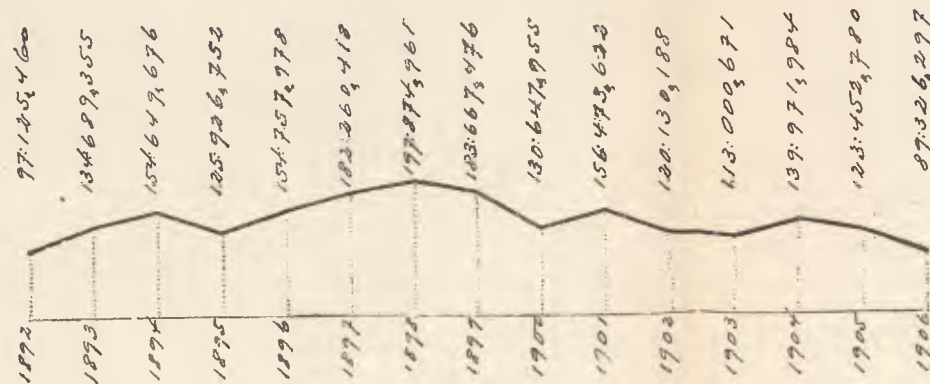 97:125,460
134:689,355
154:649,676
125:926,752
154:757,978
182:260,418
197:874,961
183:667,476
130:647,955
156:473,622
120:130,188
113:000,671
139:971,984
123:452,780
89:326,297
1892
1893
1894
1895
1896
1897
1898
1899
1900
1901
1902
1903
1904
1905
1906